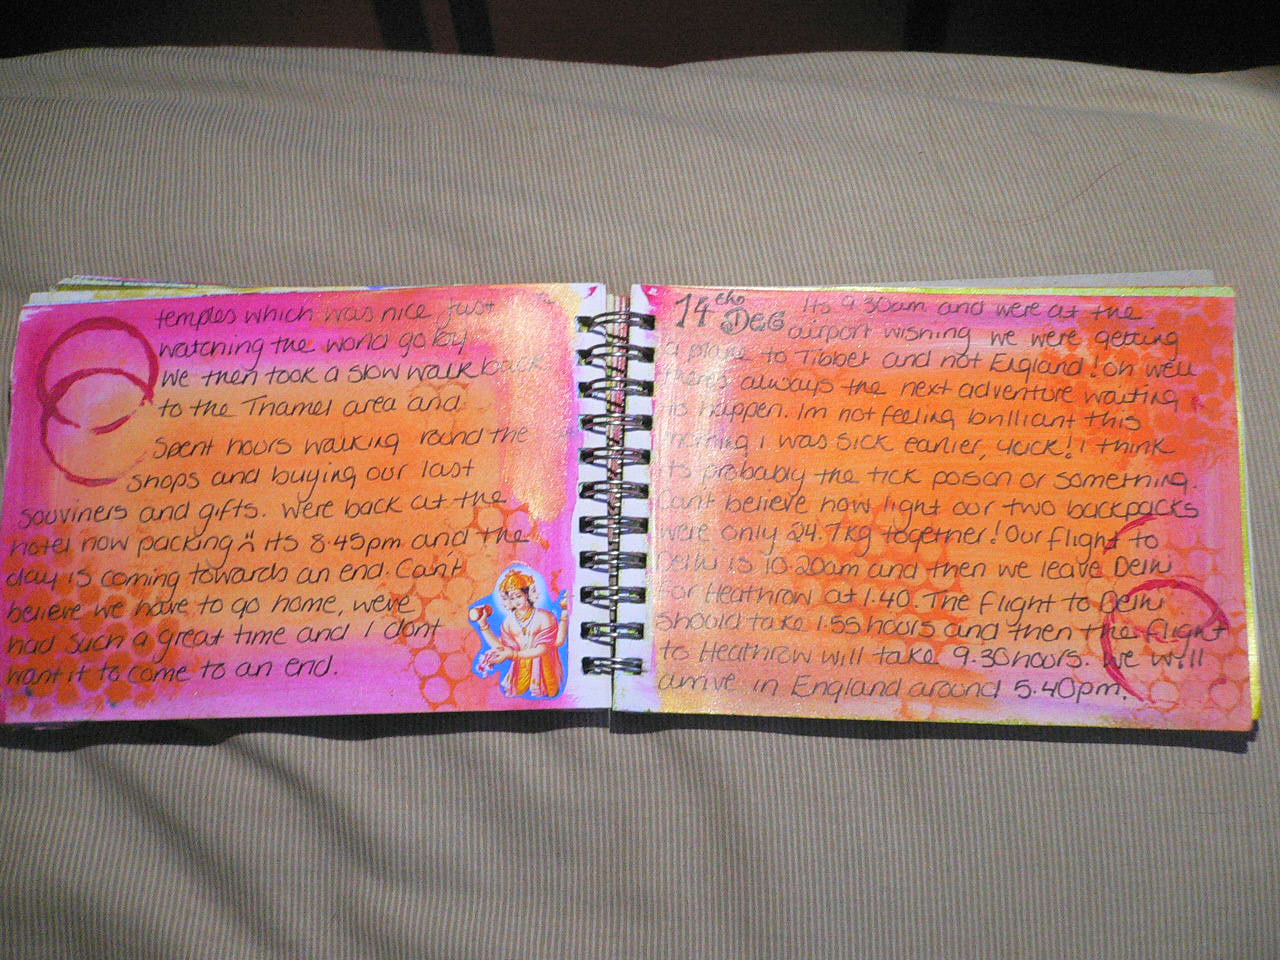 temples which was nice just
watching the world go by
We then took a slow walk back
to the Thamel area and
Spent hours walking round the
shops and buying our last
souviners and gifts. Were back at the
hotel now packing its 8.45pm and the
day is coming towards an end. Can't
believe we have to go home, weve
had such a great time and I dont
want it to come to an end.
14th Dec
Its 9.30am and were at the
airport wishing we were getting
a plane to Tibbet and not England! oh well
theres always the next adventure waiting
to happen. Im not feeling brilliant this
morning i was sick earlier, yuck! i think
its probably the tick poison or something.
Cant believe how light our two backpacks
were only 24.7kg together! Our flight to
Delhi is 10.20am and then we leave Delhi
for Heathrow at 1.40. The flight to Delhi
should take 1.55 hours and then the flight
to Heathrow will take 9.30hours. We will
arrive in England around 5.40pm.